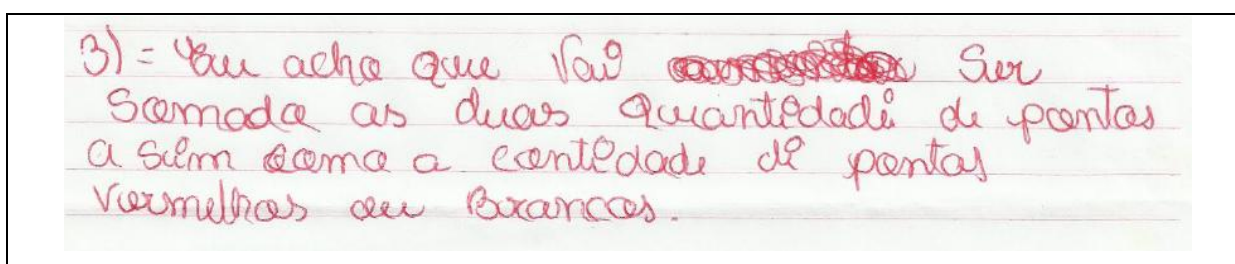 3) = Eu acho que Vai Ser
Somado as duas Quantidadi de pontos
a sim como a contidade di pontos
Vermelhos ou Brancos.